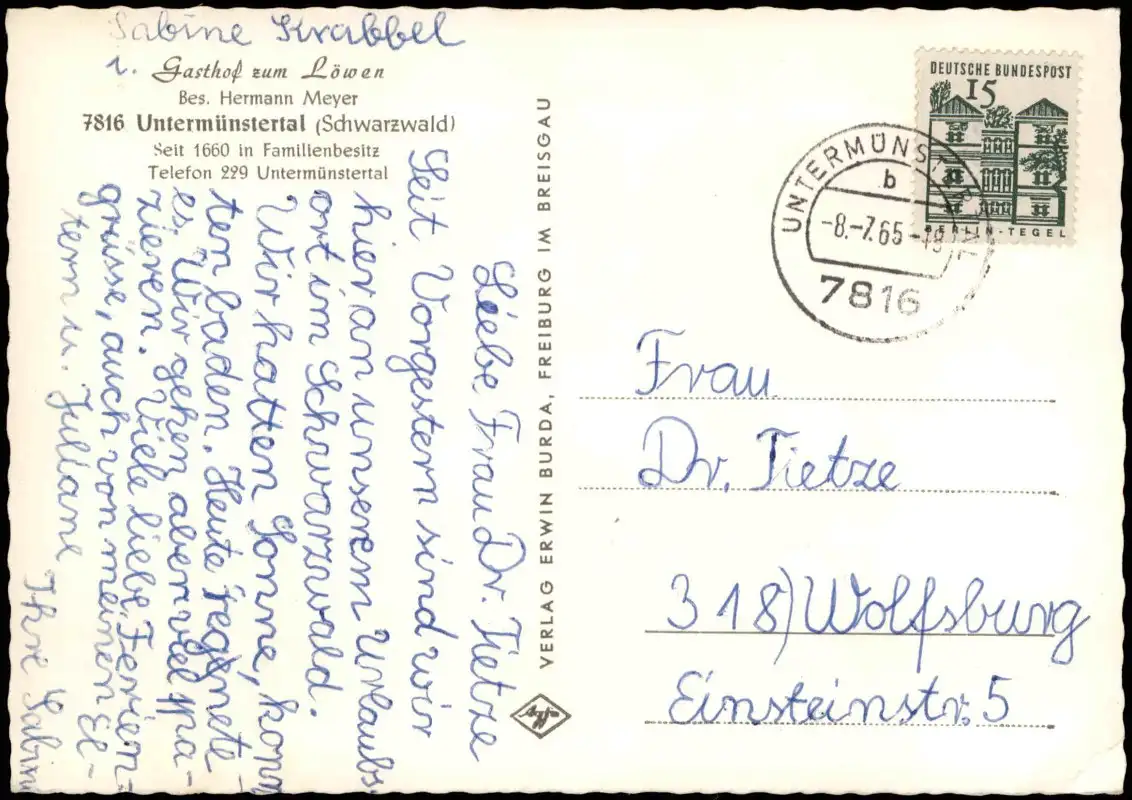 Sabine Krabbel
z. Gasthof zum Löwen
Bes. Hermann Meyer
7816 Untermünstertal (Schwarzwald)
Seit 1660 in Familienbesitz
Telefon 229 Untermünstertal
Liebe Frau Dr. Tietze
Seit Vorgestern sind wir
hier an unserem Urlaubs
ort im Schwarzwald.
Wir hatten Sonne, konn
ten baden. Heute regnete
es. Wir gehen aber viel spa-
zieren. Viele liebe Ferien-
grüsse, auch von meinen El-
tern u. Juliane
Ihre Sabine
VERLAG ERWIN BURDA, FREIBURG IM BREISGAU
DEUTSCHE BUNDESPOST
15
BERLIN-TEGEL
UNTERMÜNSTERTAL
b
-8.-7.65-18
7816
Frau
Dr. Tietze
318) Wolfsburg
Einsteinstr. 5